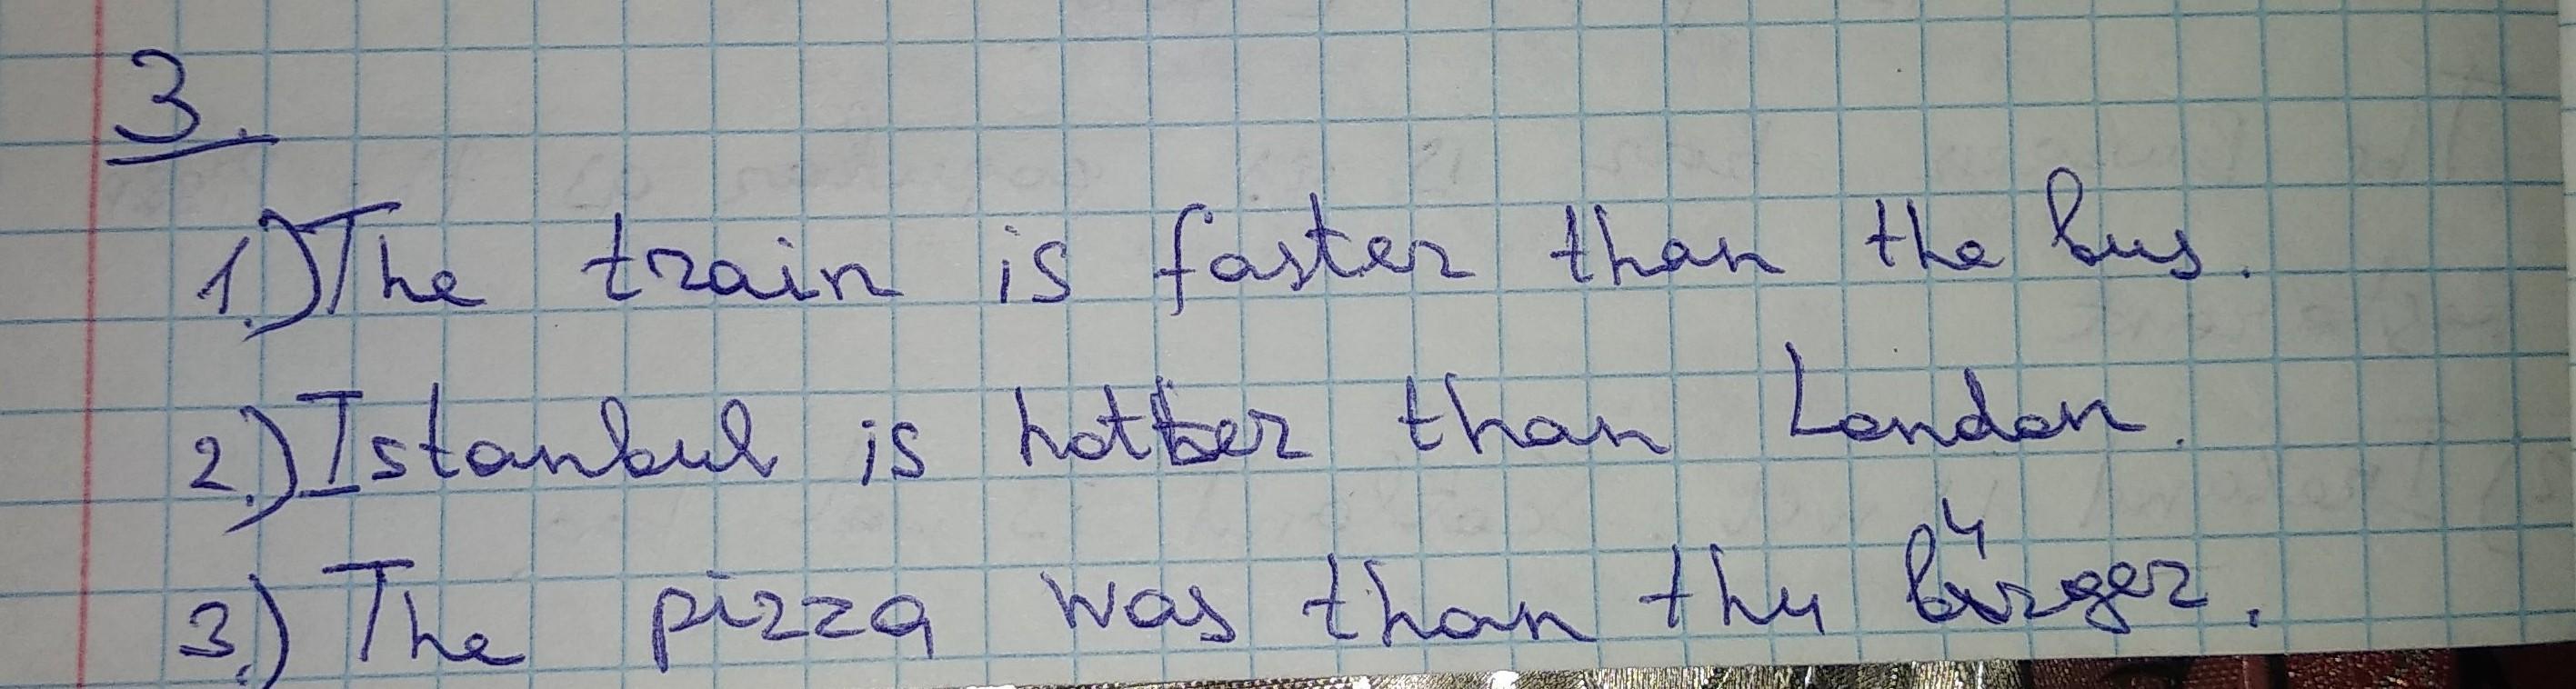 3.
1.) The train is faster than the bus.
2.) Istanbul is hotter than London.
3.) The pizza was than thy burger.